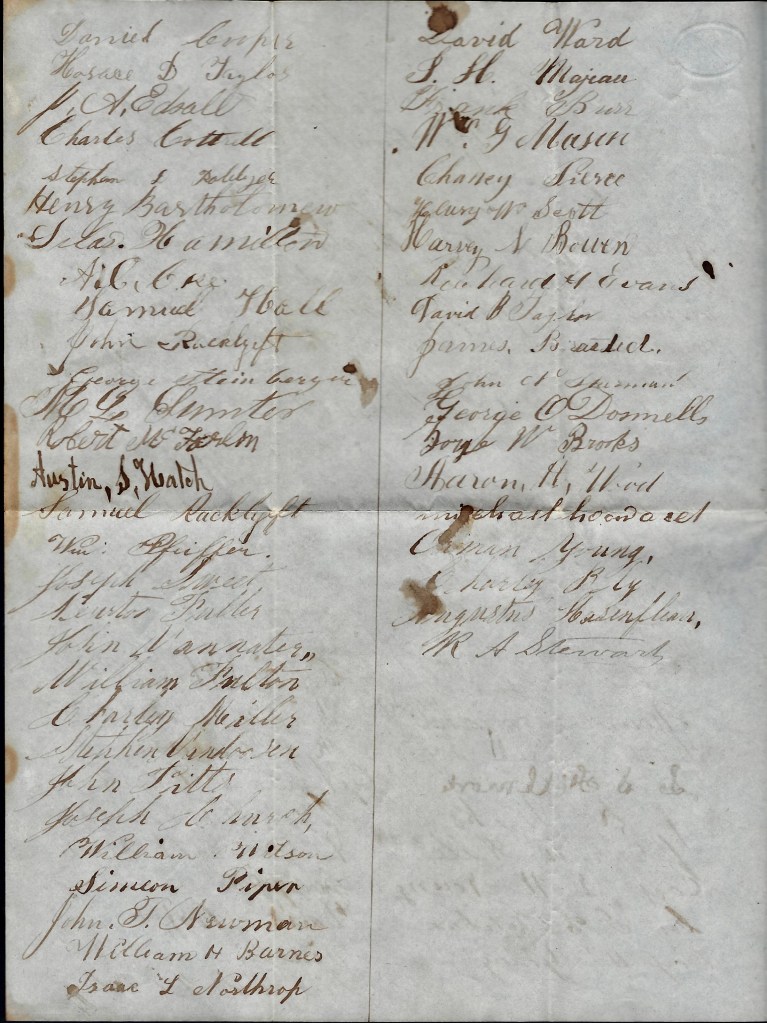 Daniel Cooper
Horace D Taylor
J. A. Edsall
Charles Cottrell
Stephen
Henry Bartholomew
Silas. Hamilton
A. C.
Samuel Hall
John Racklyft
George Steinberger
M L Sumter
Robert
Austin, S, Hatch
Samuel Racklyft
Wm: Pfeiffer.
Joseph Sweet
Newton Fuller
John Vannater,,
William Fulton
Charley Miller
Stephen
John Fitts
Joseph
William Wilson
Simeon Piper
John. T. Newman
William H Barnes
Isaac L Northrop
David Ward
S. H.
Frank Burr
W. G Mason
Chancy Pierce
Henry W Scott
Harvey N Bowen
Richard H Evans
David B Taylor
James.
John N Sherman
George O Donnells
W Brooks
Aaron, H, Wood
Orman Young,
Charley Rly
Augustus
W R A Stewart